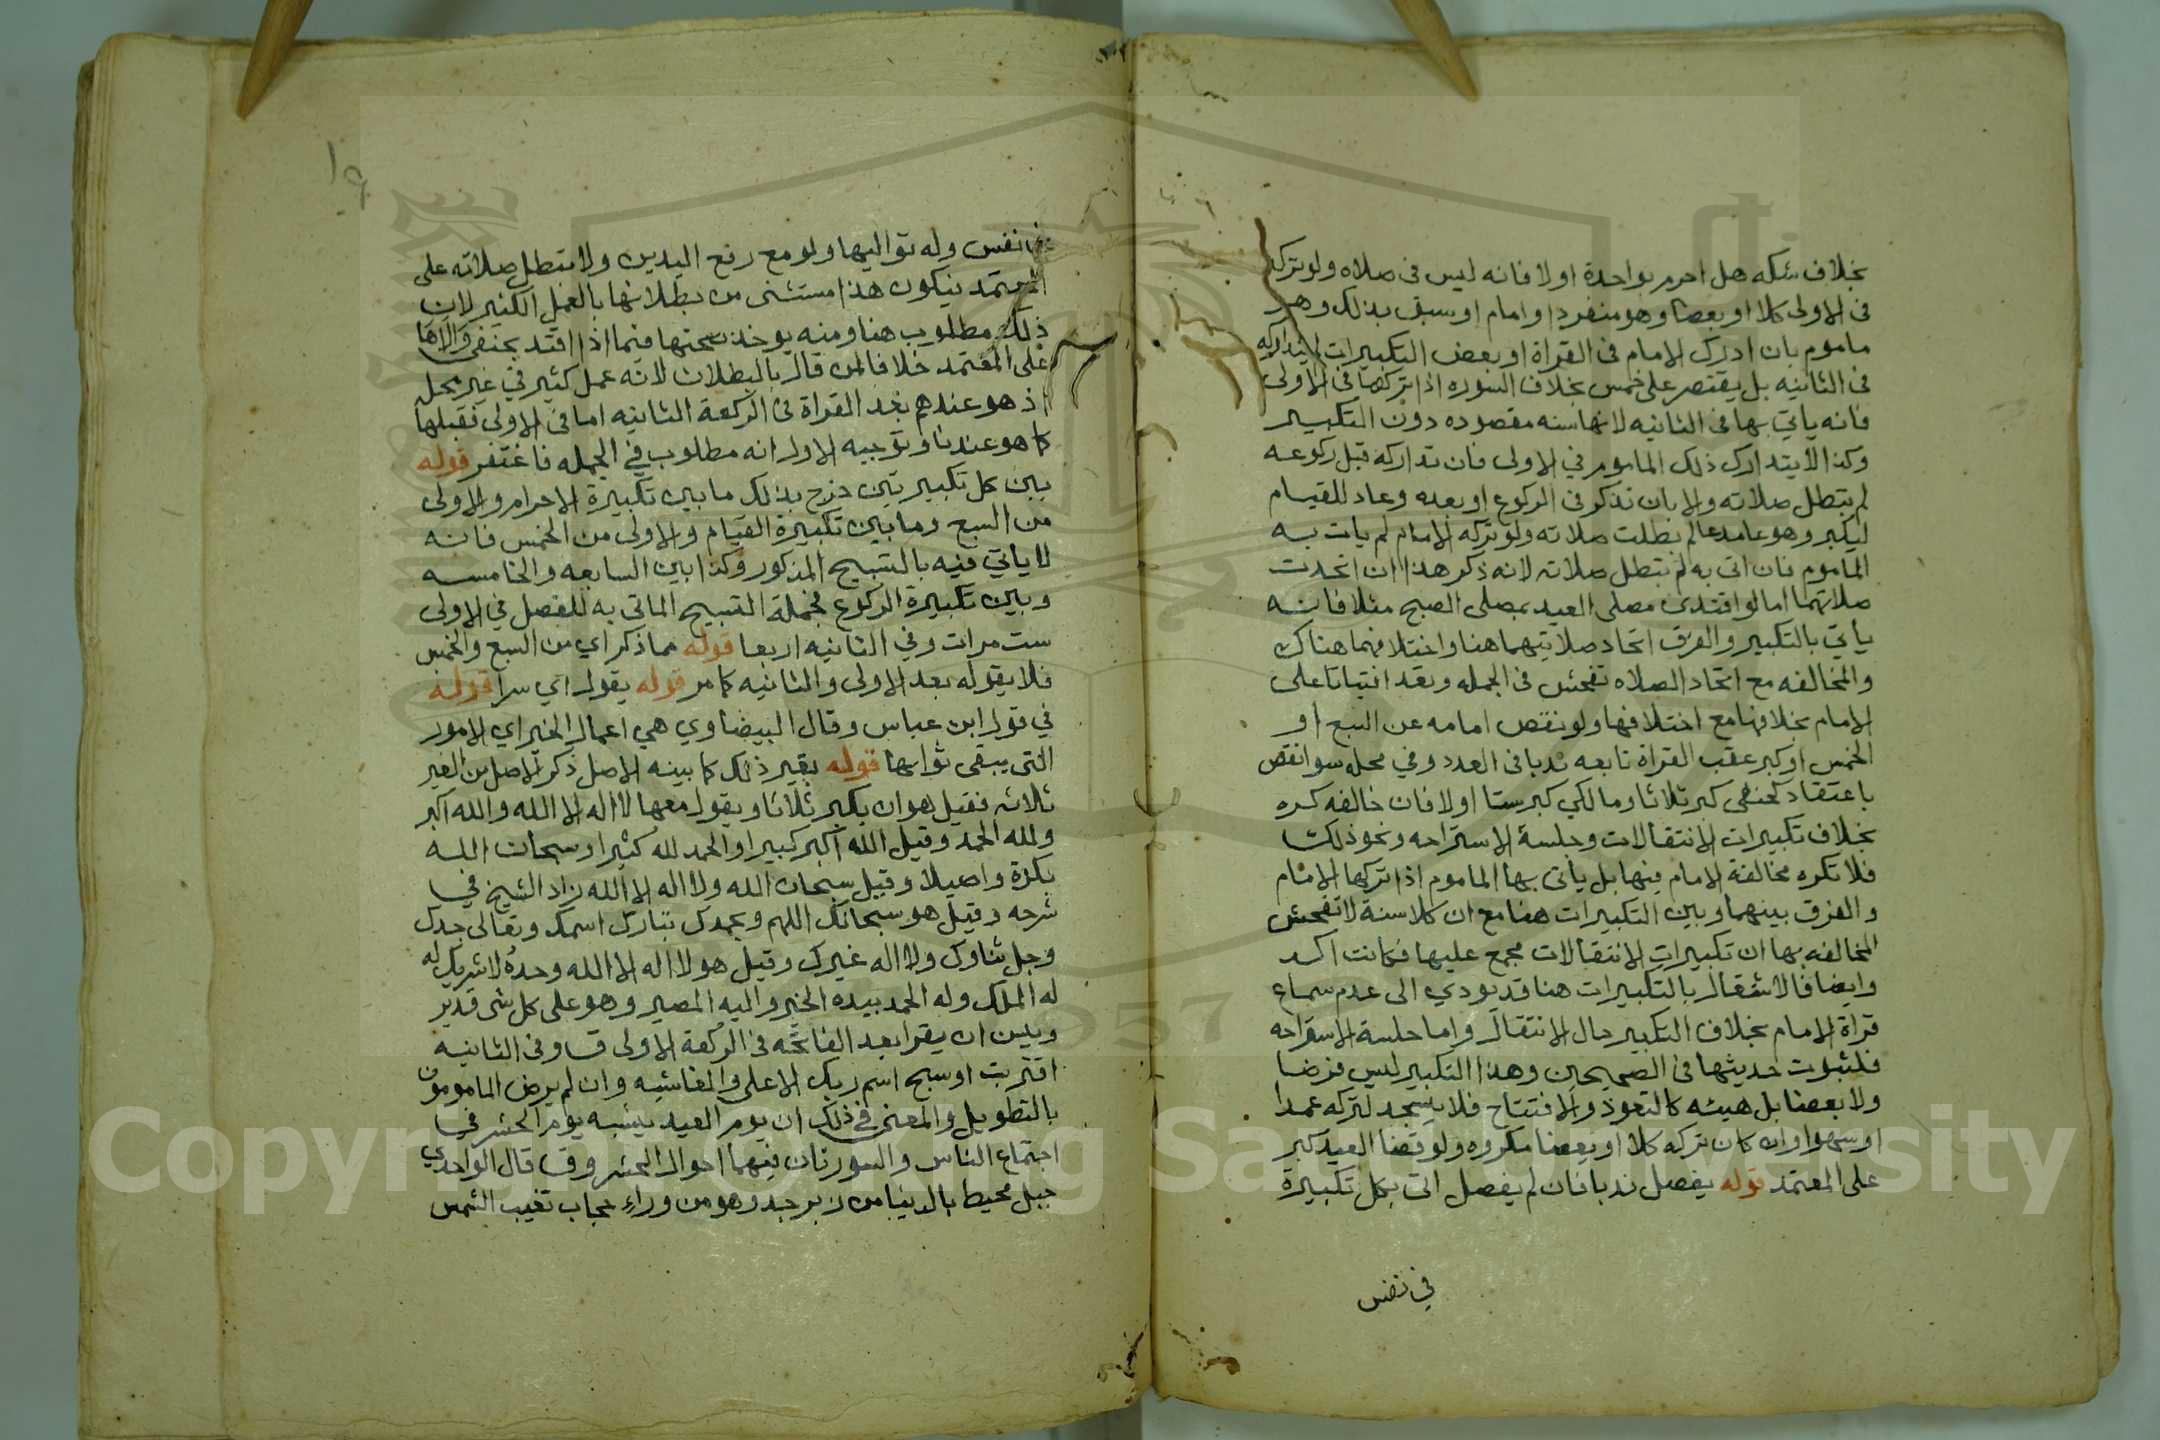 بخلاف شكه هل احرم بواحدة اولا فانه ليس فى صلاه ولو تركه
فى الاولى كلا او بعضا وهو منفردا وامام او سبق بذلك وهو
ماموم بان ادرك الامام فى القراة او بعض التكبيرات لم يتداركه
فى الثانيه بل يقتصر على خمس بخلاف السوره اذا تركها فى الاولى
فانه ياتي بها فى الثانيه لانها سنه مقصوده دون التكبير
وكذا لا يتدارك ذلك الماموم في الاولى فان تداركه قبل ركوعه
لم تبطل صلاته والا بان تذكر فى الركوع او بعده وعاد للقيام
ليكبر وهو عامد عالم بطلت صلاته ولو تركه الامام لم يات به
الماموم فان اتى به لم تبطل صلاته لانه ذكر هذا ان اتحدت
صلاتهما اما لو اقتدى مصلى العيد بمصلى الصبح مثلا فانه
ياتي بالتكبير والفرق اتحاد صلاتيهما هنا واختلافهما هناك
والمخالفه مع اتحاد الصلاه تفحش فى الجمله وتعد افتياتا على
الامام بخلافها مع اختلافها ولو نقص امامه عن السبع او
الخمس او كبر عقب القراة تابعه ندبا فى العدد وفي محله سوا نقص
باعتقاد كحنفى كبر ثلاثا ومالكي كبر ستا اولا فان خالفه كره
بخلاف تكبيرات الانتقالات وجلسة الاستراحه ونحو ذلك
فلا تكره مخالفة الامام فيها بل ياتى بها الماموم اذا تركها الامام
والفرق بينهما وبين التكبيرات هنا مع ان كلا سنة لا تفحش
المخالفه بها ان تكبيرات الانتقالات مجمع عليها فكانت اكد
وايضا فالاشتغال بالتكبيرات هنا قد يودي الى عدم سماع
قراة الامام بخلاف التكبير حال الانتقال واما جلسة الاستراحه
فلثبوت حديثها فى الصحيحين وهذا التكبير ليس فرضا
ولا بعضا بل هيئه كالتعوذ والافتتاح فلا يسجد لتركه عمدا
او سهوا وان كان تركه كلا او بعضا مكروه ولو قضا العيد كبر
على المعتمد قوله يفصل ندبا فان لم يفصل اتى بكل تكبيرة
في نفس
في نفس وله تواليها ولو مع رفع اليدين ولا تبطل صلاته على
المعتمد فيكون هذا مستثنى من بطلانها بالعمل الكثير لان
ذلك مطلوب هنا ومنه يوخذ صحتها فيما اذا اقتد بحنفى والاها
على المعتمد خلافا لمن قال بالبطلان لانه عمل كثير في غير محله
اذ هو عندهم بعد القراة فى الركعة الثانيه اما فى الاولى فقبلها
كما هو عندنا وتوجيه الاول انه مطلوب في الجمله فاغتفر قوله
بين كل تكبيرتين خرج بذلك ما بين تكبيرة الاحرام والاولى
من السبع وما بين تكبيرة القيام والاولى من الخمس فانه
لا ياتي فيه بالتسبيح المذكور وكذا بين السابعه والخامسه
وبين تكبيرة الركوع فجملة التسبيح الماتى به للفصل في الاولى
ست مرات وفي الثانيه اربعا قوله مما ذكر اي من السبع والخمس
فلا يقوله بعد الاولى والثانيه كما مر قوله يقول اي سرا قوله
في قول ابن عباس وقال البيضاوي هي اعمال الخير اي الامور
التى يبقى ثوابها قوله بغير ذلك كما بينه الاصل ذكر الاصل من الغير
ثلاثه فقيل هو ان يكبر ثلاثا ويقول معها لا اله الا الله والله اكبر
ولله الحمد وقيل الله اكبر كبيرا والحمد لله كثيرا وسبحان الله
بكرة واصيلا وقيل سبحان الله ولا اله الا الله زاد الشيخ في
شرحه وقيل هو سبحانك اللهم وبحمدك تبارك اسمك وتعالى جدك
وجل ثناوك ولا اله غيرك وقيل هو لا اله الا الله وحده لا شريك له
له الملك وله الحمد بيده الخير واليه المصير وهو على كل شى قدير
ويسن ان يقرا بعد الفاتحه فى الركعة الاولى ق وفى الثانيه
اقتربت او سبح اسم ربك الاعلى والغاشيه وان لم يرض المامومون
بالتطويل والمعنى في ذلك ان يوم العيد يشبه يوم الحشر في
اجتماع الناس والسورتان فيهما احوال الحشر وق قال الواحدي
جبل محيط بالدنيا من زبرجد وهو من وراء حجاب تغيب الشمس